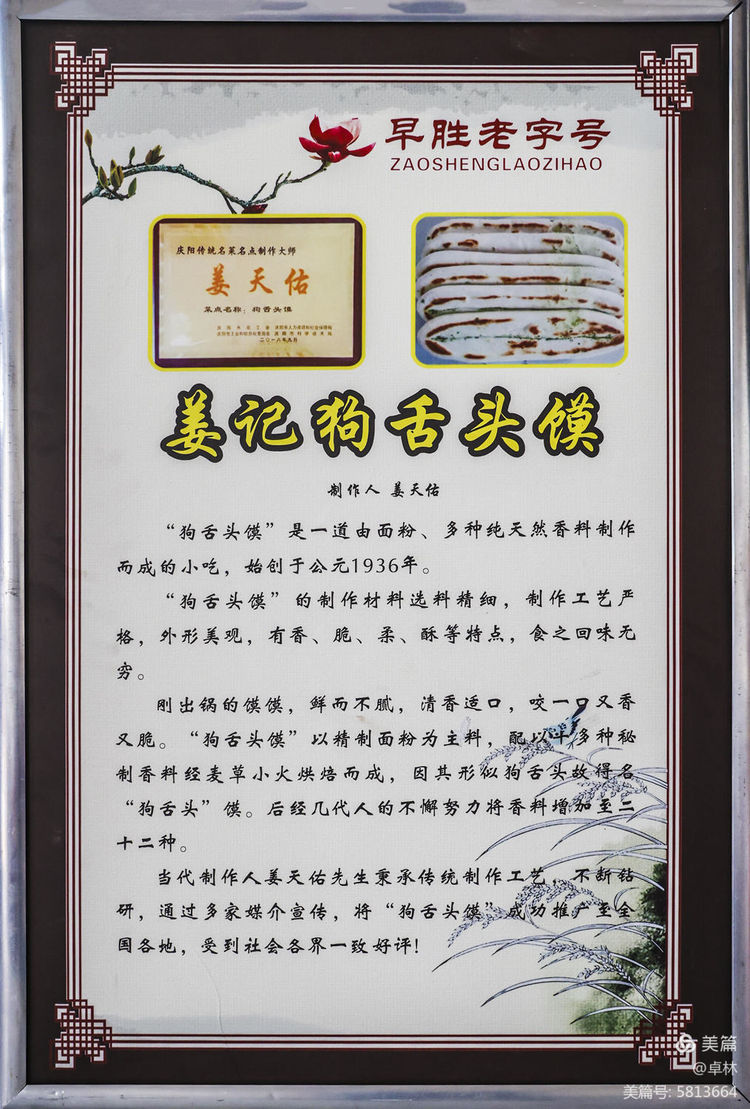 早胜老字号
ZAOSHENGLAOZIHAO
庆阳传统名菜名点制作大师
姜天佑
菜点名称：狗舌头馍
二〇一六年九月
姜记狗舌头馍
制作人 姜天佑
“狗舌头馍”是一道由面粉、多种纯天然香料制作
而成的小吃，始创于公元1936年。
“狗舌头馍”的制作材料选料精细，制作工艺严
格，外形美观，有香、脆、柔、酥等特点，食之回味无
穷。
刚出锅的馍馍，鲜而不腻，清香适口，咬一口又香
又脆。“狗舌头馍”以精制面粉为主料，配以十多种秘
制香料经麦草小火烘焙而成，因其形似狗舌头故得名
“狗舌头”馍。后经几代人的不懈努力将香料增加至二
十二种。
当代制作人姜天佑先生秉承传统制作工艺，不断钻
研，通过多家媒介宣传，将“狗舌头馍”成功推广至全
国各地，受到社会各界一致好评！
美篇
@卓林
美篇号: 5813664